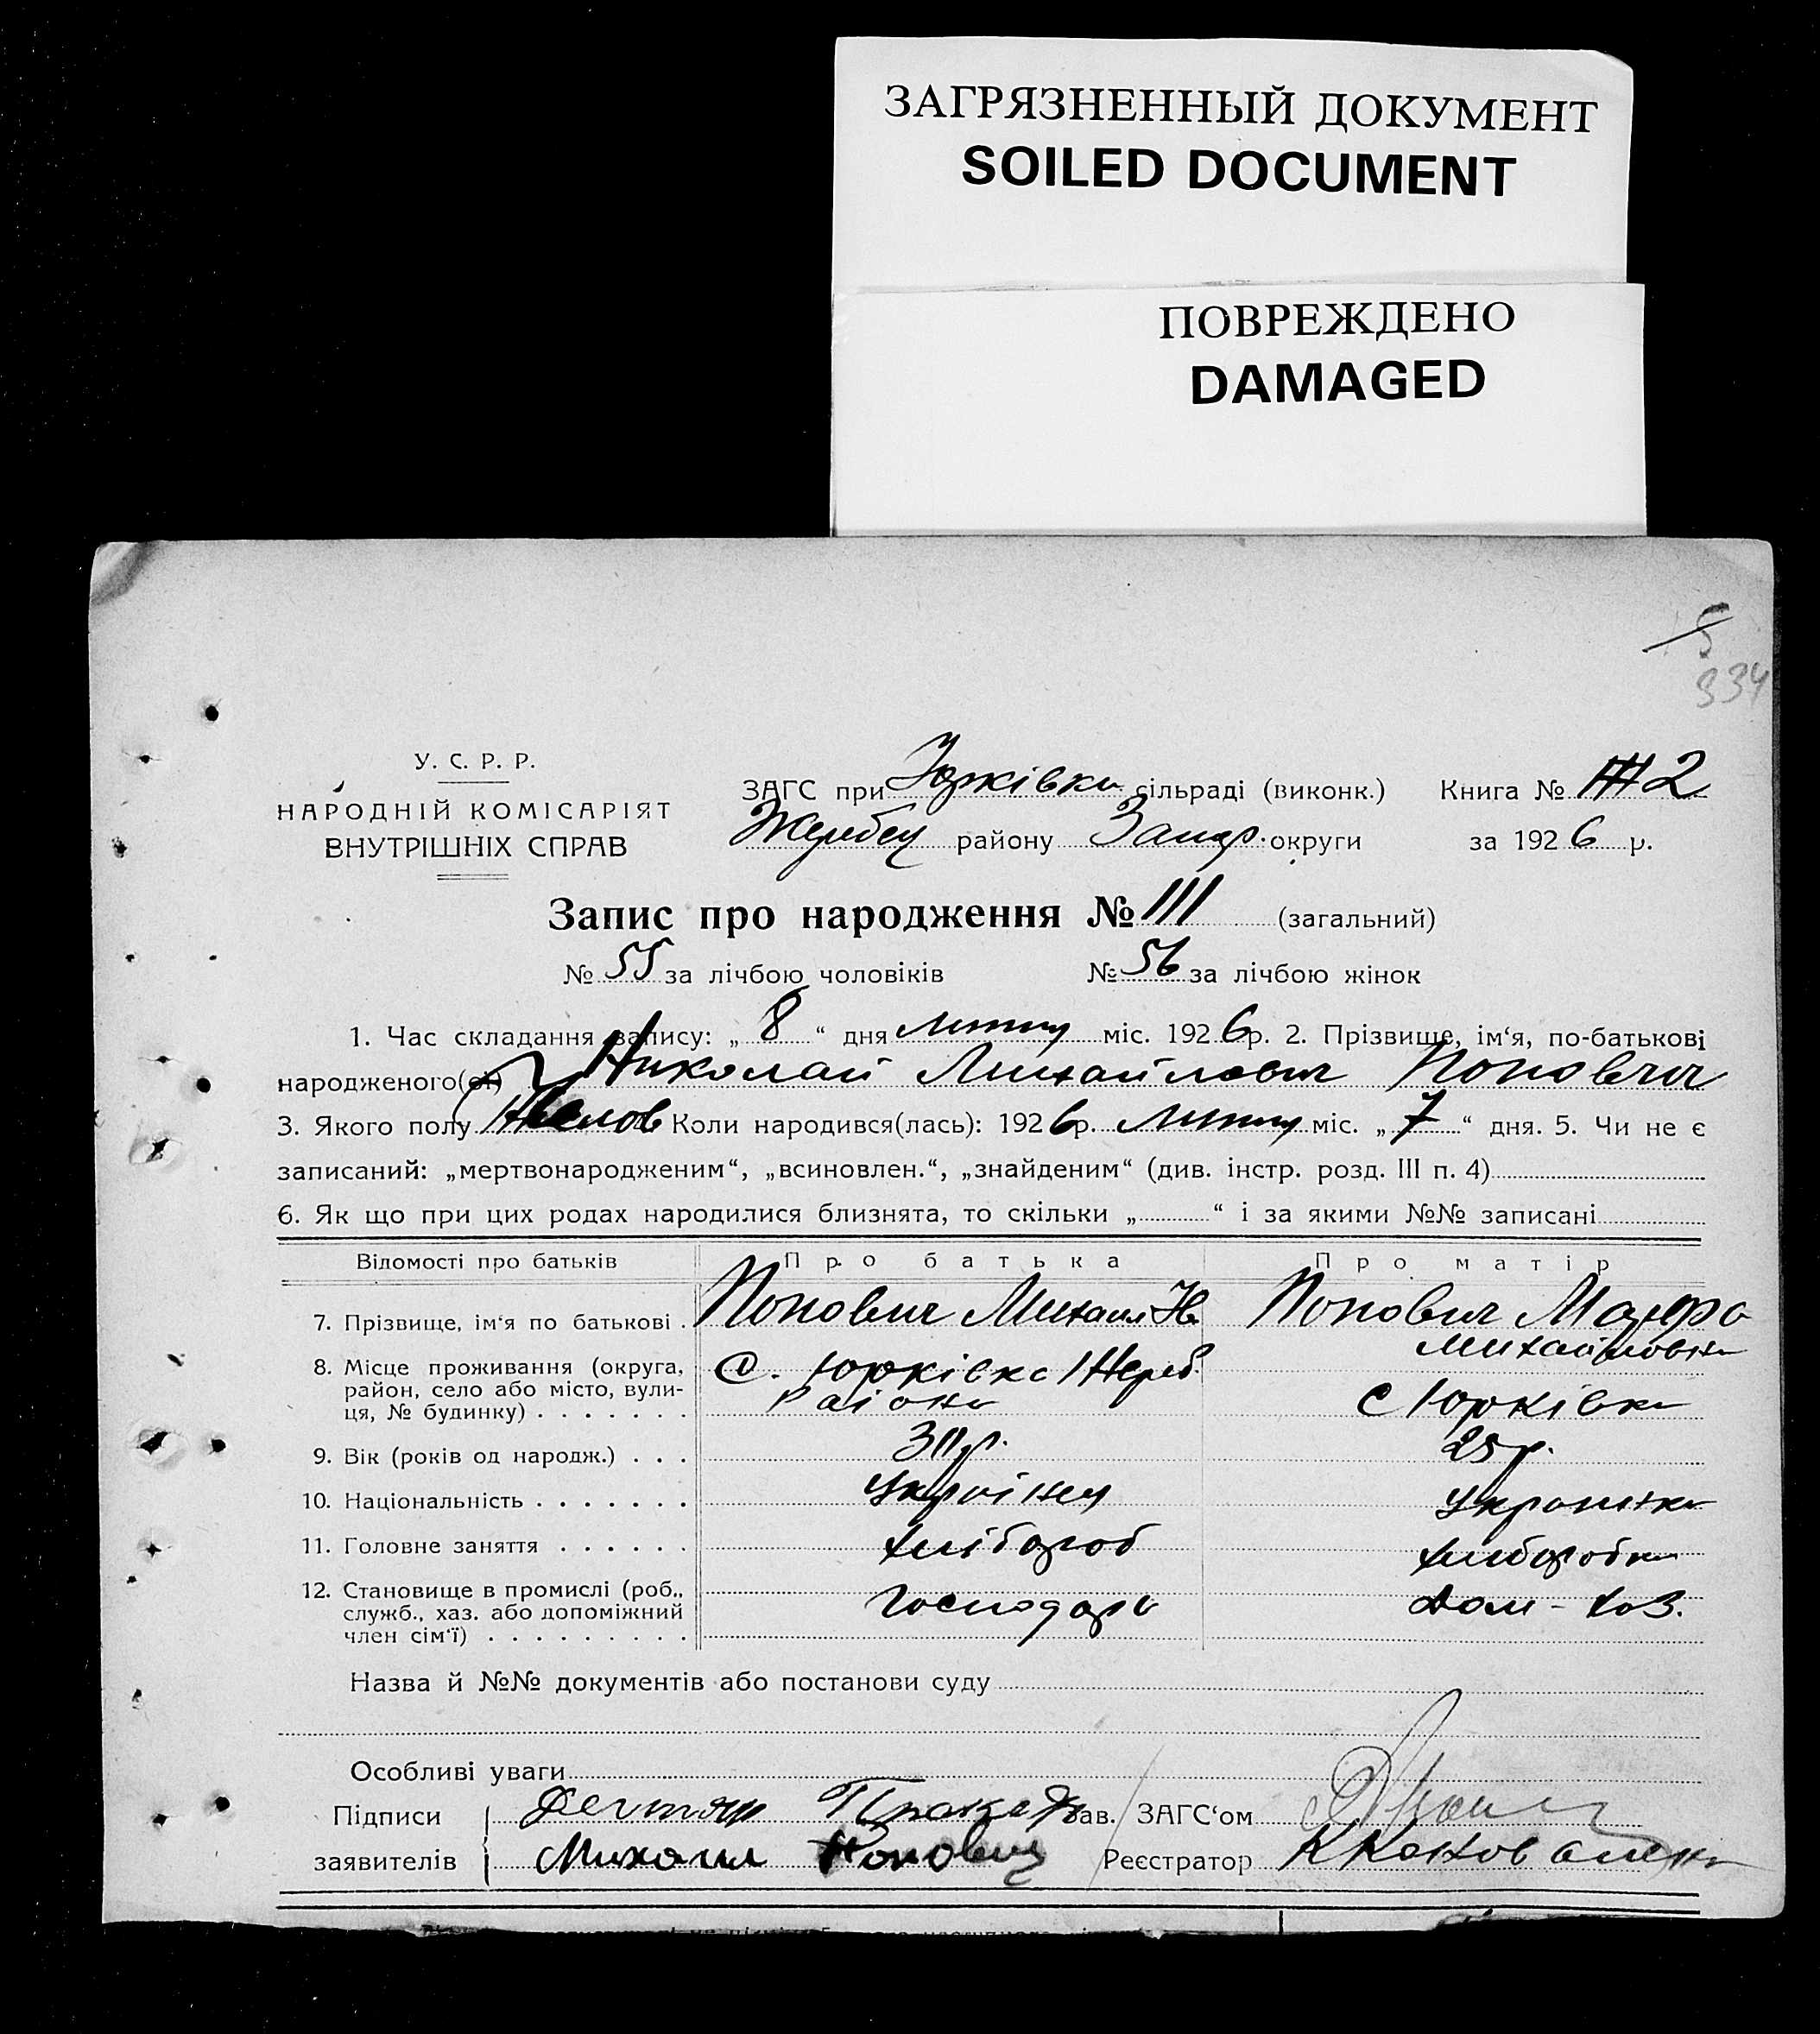 ЗАГРЯЗНЕННЫЙ ДОКУМЕНТ
SOILED DOCUMENT
ПОВРЕЖДЕНО
DAMAGED
5
334
У. С. Р. Р.
НАРОДНІЙ КОМІСАРІЯТ
ВНУТРІШНІХ СПРАВ
ЗАГС при Юрківки сільраді (виконк.) Книга № 2
Жеребец району Запор. округи за 1926 р.
Запис про народження № 111 (загальний)
№ 55 за лічбою чоловіків № 56 за лічбою жінок
1. Час складання запису: „8“ дня міс. 1926 р. 2. Прізвище, ім‘я, по-батькові
народженого(ої) Николай Михайлович Попович
3. Якого полу Коли народився(лась): 1926 р. міс. „7“ дня. 5. Чи не є
записаний: „мертвонародженим“, „всиновлен.“, „знайденим“ (див. інстр. розд. III п. 4)
6. Як що при цих родах народилися близнята, то скільки „ “ і за якими №№ записані
Відомості про батьків Про батька Про матір
7. Прізвище, ім‘я по батькові . Попович Михаил Ив. Попович Марфа
Михайловна
8. Місце проживання (округа, С. Юрківка Жереб.
район, село або місто, вули- району
ця, № будинку) . . . . . . . с Юрківки
9. Вік (років од народж.) . . . 30 р. 25 р.
10. Національність . . . . . . . Українец Украинка
11. Головне заняття . . . . . . хлібороб хлиборобка
12. Становище в промислі (роб., Господарь Дом-хоз.
служб., хаз. або допоміжний
член сім‘ї) . . . . . . . . .
Назва й №№ документів або постанови суду
Особливі уваги
Підписи Дегтяр Зав. ЗАГС‘ом
заявителів Михаил Попович Реєстратор